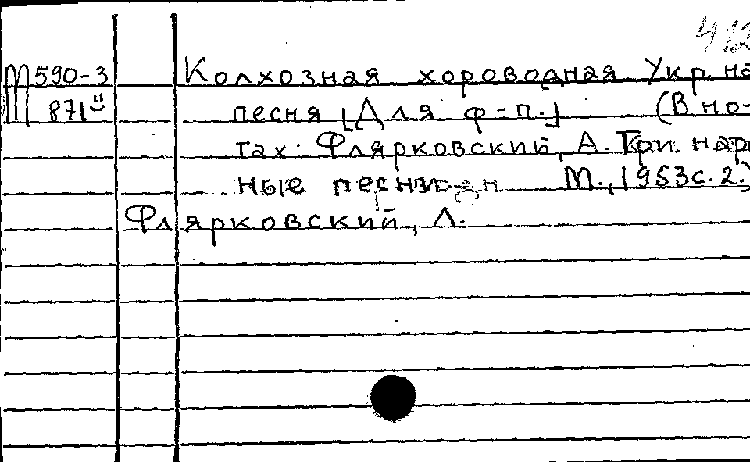 412
М 590-3 Колхозная хороводная Укр. на
871и песня [Для ф-п.] (В но-
тах: Флярковский, А. Три нар
ные песни М., 1953 с. 2.)
Флярковский, А.